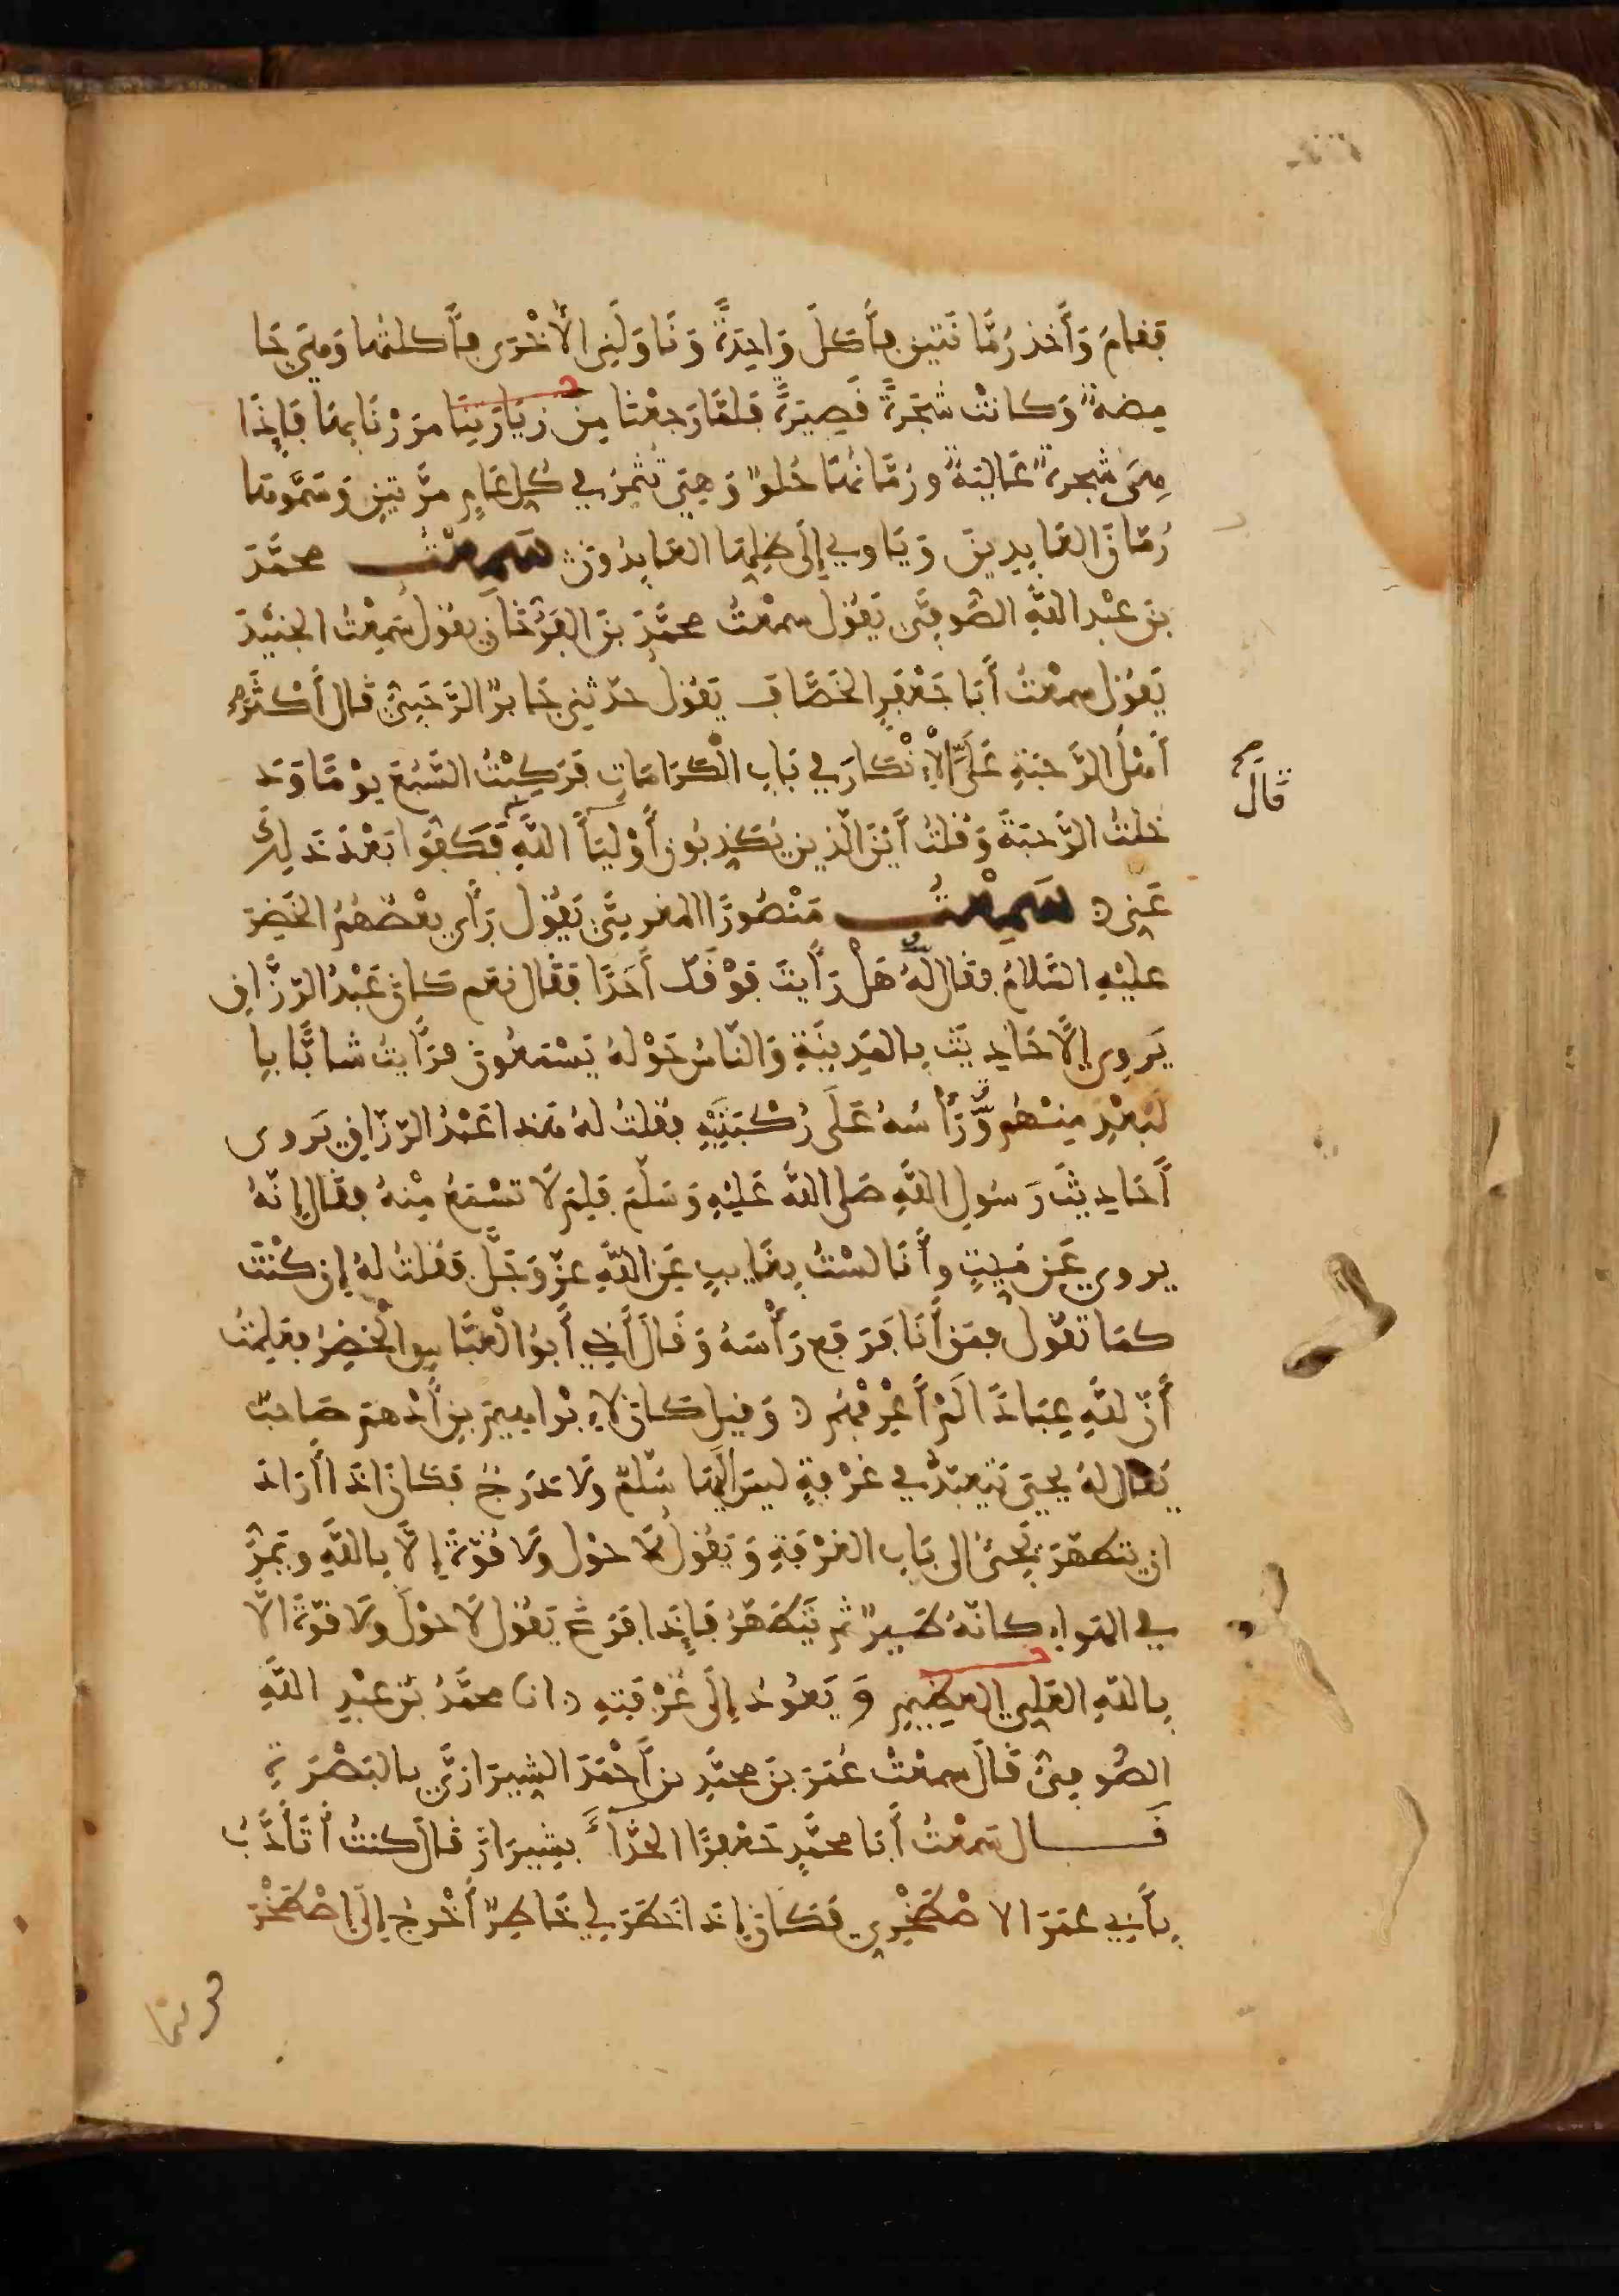 فقام وأخذ رُمَّانَتين فأكلَ وَاحِدَةً وَنَاوَلَنِى الأُخْرَى فأكلتها وَهِيَ حَا
مضة وَكانتْ شَجَرةً قَصِيرَةً فلمَّا رَجعْنَا مِنْ زيَارَتِنَا مرَرْنَا بِهَا فَإِذَا
هِىَ شجرة عَالِيَةٌ ورُمَّانُهَا حُلوٌ وَهِيَ تُثْمِرُ في كُلِّ عَامٍ مرَّتينِ وَسَمَّوهَا
رُمّانَ العَابِدِينَ وَيَاوِي إلَى ظِلِّهَا العَابِدُونَ سَمِعْتُ محمَّدَ
بنَ عبْدِ اللّهِ الصُّوفِيَّ يَقُول سمعْتُ محمَّدَ بنَ الفَرُّخَانِ يقُول سَمِعْتُ الجنيْدَ
يَقُول سمعْتُ أَبَا جَعْفَرٍ الخَصَّافَ يَقُولُ حدّثنِي جَابرٌ الرَّحَبِيُّ قال أَكْثَرَ
أهْلُ الرَّحبَةِ عَلَيَّ الإنْكَارَ في بَابِ الْكَرَامَاتِ فَرَكِبْتُ السَّبُعَ يوْمًا وَدَ
خلتُ الرَّحبَةَ وَقُلتُ أَيْنَ الّذِين يُكَذِّبُونَ أَوْلِيَآءَ اللَّهِ قَالَ فَكَفُّوا بَعْدَ ذَلِكَ
عَنِي سَمِعْتُ مَنْصُورًا المغربيَّ يَقُول رَأَى بعْضُهُمُ الخَضِرَ
عليْهِ السّلامُ فقال لهُ هَلْ رَأَيتَ فَوْقَكَ أَحَدًا فَقَال نعم كَانَ عَبْدُ الرّزَّاقِ
يَروِى الأَحَادِيثَ بِالمَدِينَةِ وَالنّاسُ حَوْلهُ يَسْتَمِعُونَ فرَأَيتُ شابًّا با
لبُعْدِ مِنْهُم وَّرَأْسُهُ عَلَى رُكْبَتَيْهِ فقلتُ لهُ هَذا عَبْدُ الرّزَّاقِ يَروى
أحَادِيثَ رَسُولِ اللّهِ صَلى اللّهُ عَلَيْهِ وَسَلّمَ فلِمَ لَا تسْمَعُ مِنْهُ فقَال إِنّهُ
يروي عَن مَيِّتٍ وأَنَا لسْتُ بِغَايبٍ عَنِ اللّهِ عزّ وَجَلَّ فقُلتُ لهُ إن كُنْتَ
كمَا تقول فمَن أَنَا فَرَفعَ رَأْسَهُ وَقَالَ أخِي أَبُو الْعَبَّاسِ الْخَضِرُ فعَلِمْتُ
أنّ للّهِ عِبَادًا لَمْ أَعْرِفْهُم وَقيل كَانَ لإبْراهِيمَ بنِ أدْهَمَ صَاحبٌ
يُقال لهُ يحيَى يَتَعَبَّدُ في غرْفَةٍ ليسَ إليْهَا سُلّمٌ ولَا دَرَجٌ فَكَانَ إذا أرَادَ
ان يتطهّرَ يَجِيءُ الى بَابِ الغرْفَةِ وَيَقُولُ لَا حوْل ولَا قُوّةَ إِلَّا بِاللّهِ ويَمُرُّ
في الهوَاءِ كانّهُ طَيْرٌ ثم يَتَطَهّرُ فَإِذَا فَرَغَ يَقُول لَا حوْلَ ولَا قوّةَ الَّا
بِاللّهِ العَلِيِّ العَظِيمِ وَيَعُودُ إلَى غُرْفَتِهِ انا محمَّدُ بْنُ عبْدِ اللَّهِ
الصُّوفِيُّ قَالَ سمعْتُ عُمَرَ بنَ محمَّدِ بنِ أَحْمَدَ الشِيرَازيَّ بِالبَصْرَةِ
قَــال سَمِعْتُ أبَا محمَّدٍ جَعْفَرًا الحَذّآءَ بشِيرَازَ قَالَ كنتُ أتَأَدَّبُ
بِأَبِي عُمَرَ الاصْطَخْرِيِّ فَكَانَ إِذَا خَطَرَ لِي خَاطِرٌ أَخْرجُ إِلَى اصْطَخْرَ
قَالَ